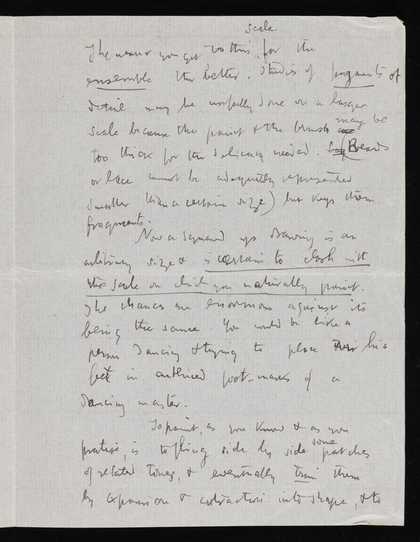 scale
The nearer you get to this for the
ensemble the better. Studies of fragments of
detail may be usefully done on a larger
scale because the paint & the brush may be
too thick for the delicacy needed. Beads
or lace cannot be adequately represented
smaller than a certain size) but keep them
fragments.
Now a squared up drawing is an
arbitrary size & is certain to clash with
the scale on which you naturally paint.
The chances are enormous against its
being the same. You would be like a
person dancing & trying to place his
feet in outlined foot-marks of a
dancing master.
To paint, as you know & as you
practise, is to fling side by side some patches
of related tones, & eventually train them
by expansion & contraction into shape, & to